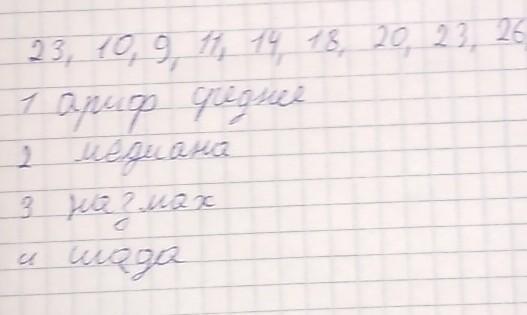 23, 10, 9, 11, 14, 18, 20, 23, 26
1 ариф среднее
2 медиана
3 размах
4 мода